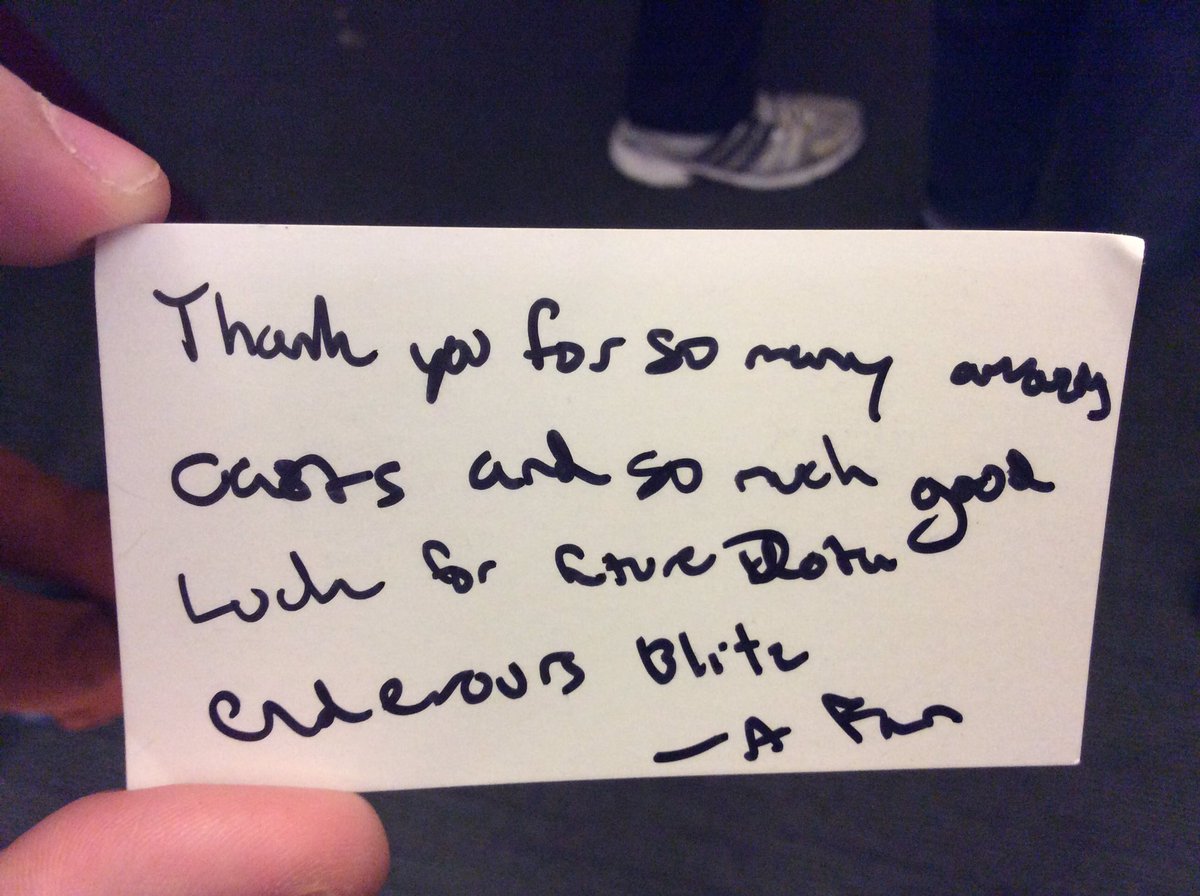 Thank you for so many amazing
casts and so much good
Luck for future Dota
endevours Blitz
— A Fan